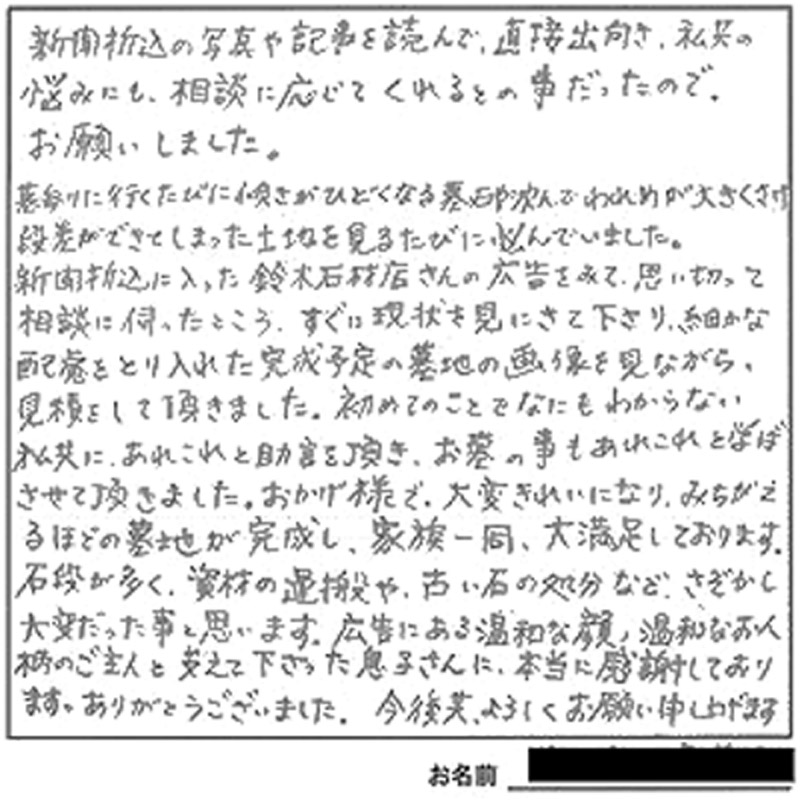 新聞折込の写真や記事を読んで、直接出向き、私共の
悩みにも、相談に応じてくれるとの事だったので。
お願いしました。
墓参りに行くたびに傾きがひどくなる墓石や沈んでわれめが大きくさけ
段差ができてしまった土地を見るたびに悩んでいました。
新聞折込に入った鈴木石材店さんの広告をみて、思い切って
相談に伺ったところ、すぐに現状を見にきて下さり、細かな
配慮をとり入れた完成予定の墓地の画像を見ながら、
見積をして頂きました。初めてのことでなにもわからない
私共に、あれこれと助言を頂き、お墓の事もあれこれと学ば
させて頂きました。おかげ様で、大変きれいになり、みちがえ
るほどの墓地が完成し、家族一同、大満足しております。
石段が多く、資材の運搬や、古い石の処分など、さぞかし
大変だった事と思います。広告にある温和な顔、温和なお人
柄のご主人と支えて下さった息子さんに、本当に感謝しており
ます。ありがとうございました。今後共、よろしくお願い申し上げます
お名前